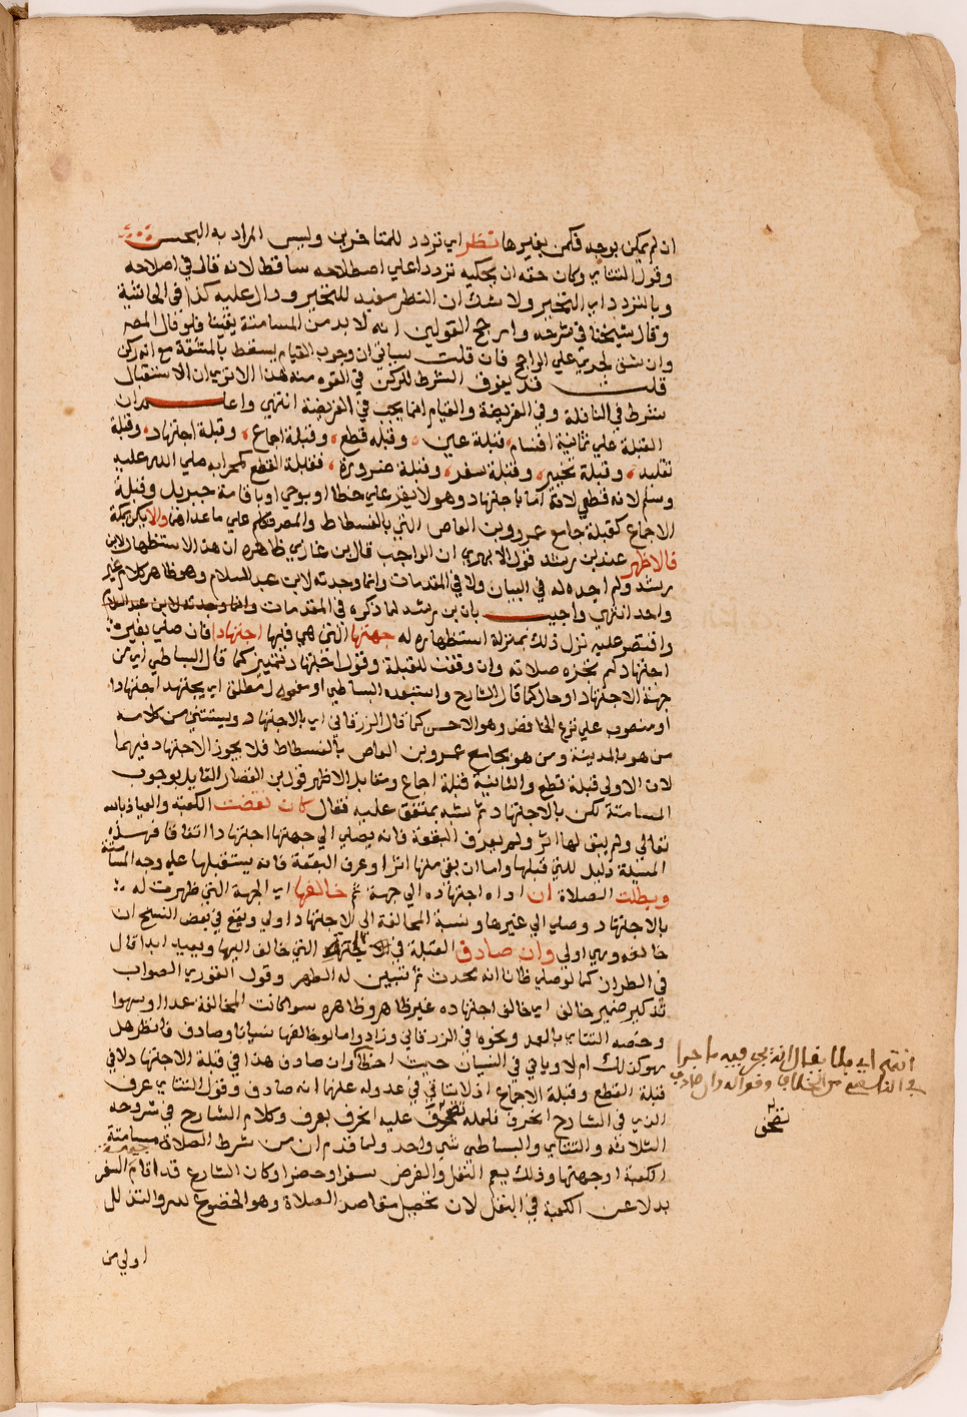 ان لم يمكن بوجه فكمن بغيرها نظر اي تردد للمتاخرين وليس المراد به البحث
وقول التتاي وكان حقه ان يحكيه ترددا علي اصطلاحه ساقط لانه قال في اصلاحه
وبالتردد اي التحير ولا شك ان النظر مفيد للتحير ودال عليه كذا في الحاشية
وقال شيخنا في شرحه وارجح القولين انه لا بد من المسامتة يقينا فلو قال المص
وان شق لجري علي الراجح فان قلت سياتي ان وجوب القيام يسقط بالمشقة مع انه ركن
قلت قد يفوق الشرط الركن في القوه منه هذا الا تري ان الاستقبال
شرط في النافلة وفي الفريضة والقيام انما يجب في الفريضة انتهي واعلم ان
القبلة علي ثمانية اقسام قبلة عين وقبلة قطع وقبلة اجماع وقبلة اجتهاد وقبلة
تقليد وقبلة تخيير وقبلة سفر وقبلة ضرورة فقبلة القطع كمحرابه صلي الله عليه
وسلم لانه قطعي لانه اما باجتهاد وهو لا يقر علي خطا او بوحي او باقامة جبريل وقبلة
الاجماع كقبلة جامع عمرو بن العاص التي بالفسطاط والمص تكلم علي ما عداهما والا يكن بمكة
فالاظهر عند بن رشد قول الابهري ان الواجب قال بن غازي ظاهره ان هذا الاستظهار لابن
رشد ولم اجده له في البيان ولا في المقدمات وانما وجدته لابن عبد السلام وهو ظاهر كلام غير
واحد انتهي واجيب بان بن رشد لما ذكره في المقدمات وانما وجدته لابن عبد السلام
واقتصر عليه نزل ذلك بمنزلة استظهاره له جهتها التي هي فيها اجتهادا فان صلي بغير
اجتهاد لم تجزه صلاته وان وقفت للقبلة وقول اجتهادا تمييز كما قال البساطي اي من
جهة الاجتهاد او حال كما قال الشارح واستبعده البساطي او مفعول مطلق اي يجتهد اجتهادا
او منصوب علي نزع الخافض وهو الاحسن كما قال الزرقاني اي بالاجتهاد ويستثني من كلامه
من هو بالمدينة ومن هو بجامع عمرو بن العاص بالفسطاط فلا يجوز الاجتهاد فيهما
لان الاولي قبلة قطع والثانية قبلة اجماع ومقابل الاظهر قول بن القصار القايل بوجوب
المسامتة لكن بالاجتهاد ثم شبه بمتفق عليه فقال كان نقضت الكعبة والعياذ بالله
تعالي ولم يبق لها اثر ولم يعرف البقعة فانه يصلي الي جهتها اجتهادا اتفاقا فهذه
المسئلة دليل للتي قبلها واما ان بقي منها اثر او عرف البقعة فانه يستقبلها علي وجه المسامتة
وبطلت الصلاة ان اداه اجتهاده الي جهة ثم خالفها اي الجهة التي ظهرت له
بالاجتهاد وصلي الي غيرها ونسبة المخالفة الي الاجتهاد اولي ويقع في بعض النسخ ان
خالفه وهي اولي وان صادف القبلة في الجهة التي خالف اليها ويعيد ابدا قال
في الطراز كما لو صلي ظانا انه محدث ثم تبين له الطهر وقول الغوري الصواب
تذكير ضمير خالف اي خالف اجتهاده غير ظاهر وظاهره سوا كانت المخالفة عمدا او سهوا
وخصه التتاي بالعمد ونحوه في الزرقاني وزاد واما لو خالفها نسيانا وصادف فانظر هل
هو كذلك ام لا وياتي في النسيان حيث اخطا وان صادف هذا في قبلة الاجتهاد لا في
قبلة القطع وقبلة الاجماع اذ لا يتاتي في عدوله عنها انه صادف وقول التتاي عرف
الذي في الشارح انحرف فلعله تصحف عليه انحرف بعرف وكلام الشارح في شروحه
الثلاثة والتتاي والبساطي شي واحد ولما قدم ان من شرط الصلاة مسامتة
الكعبة او جهتها وذلك يعم النفل والفرض سفرا وحضرا وكان الشارع قد اقام السفر
بدلا عن الكعبة في النفل لان تحصيل مقاصد الصلاة وهو الخضوع لله والتذلل
اولي من